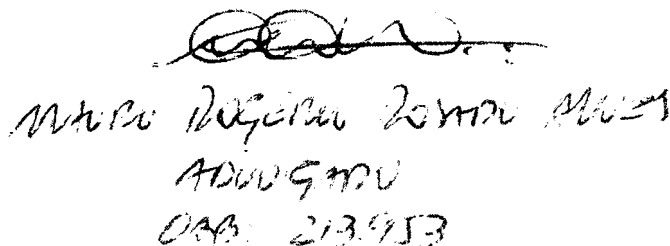 MAURO ROGÉRIO ROSADO ALVES
ADVOGADO
OAB. 213.953